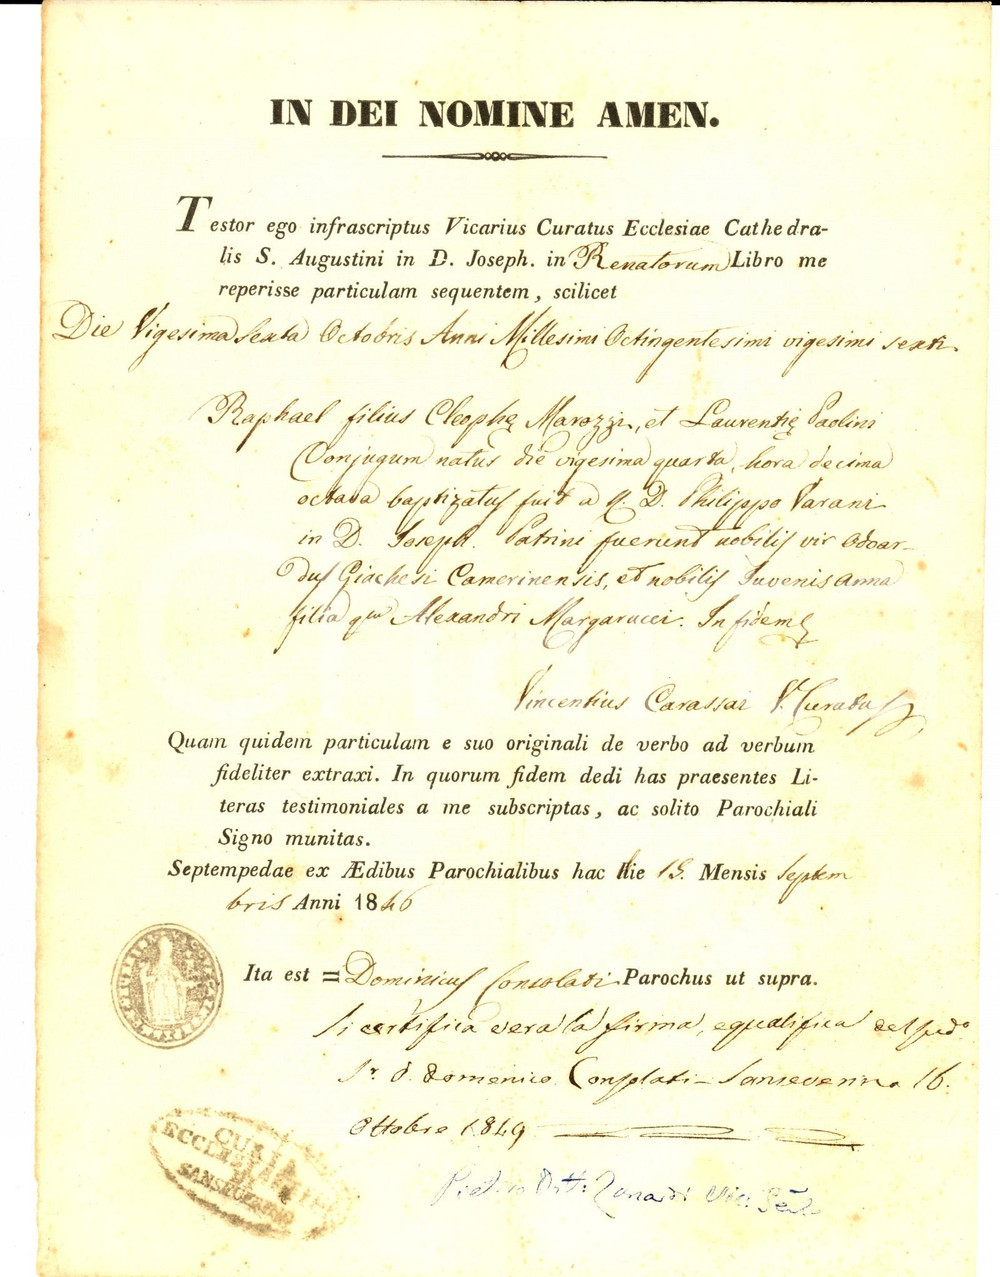 IN DEI NOMINE AMEN.
Testor ego infrascriptus Vicarius Curatus Ecclesiae Cathedra-
lis S. Augustini in D. Joseph. in Renatorum Libro me
reperisse particulam sequentem, scilicet
Die Vigesima Sexta Octobris Anni Millesimi Octingentesimi vigesimi sexti
Raphael filius Cleophę Marozzi, et Laurentię Paolini
Conjugum natus die vigesima quarta, hora decima
octava baptizatus fuit a q. D. Philippo Varani
in D. Joseph. Patrini fuerunt nobilis vir Odoar-
dus Giachesi Camerinensis, et nobilis Juvenis Anna
filia qm Alexandri Margarucci. In fidem
Vincentius Carassai V. Curatus
Quam quidem particulam e suo originali de verbo ad verbum
fideliter extraxi. In quorum fidem dedi has praesentes Li-
teras testimoniales a me subscriptas, ac solito Parochiali
Signo munitas.
Septempedae ex Ædibus Parochialibus hac die 15. Mensis Septem
bris Anni 1846
Ita est = Dominicus Consolati Parochus ut supra.
Si certifica vera la firma, e qualifica del sudo
Sr. D. Domenico Consolati - Sanseverino 16.
Ottobre 1849
CURIA
ECCLESIASTICA
SANSEVERINO